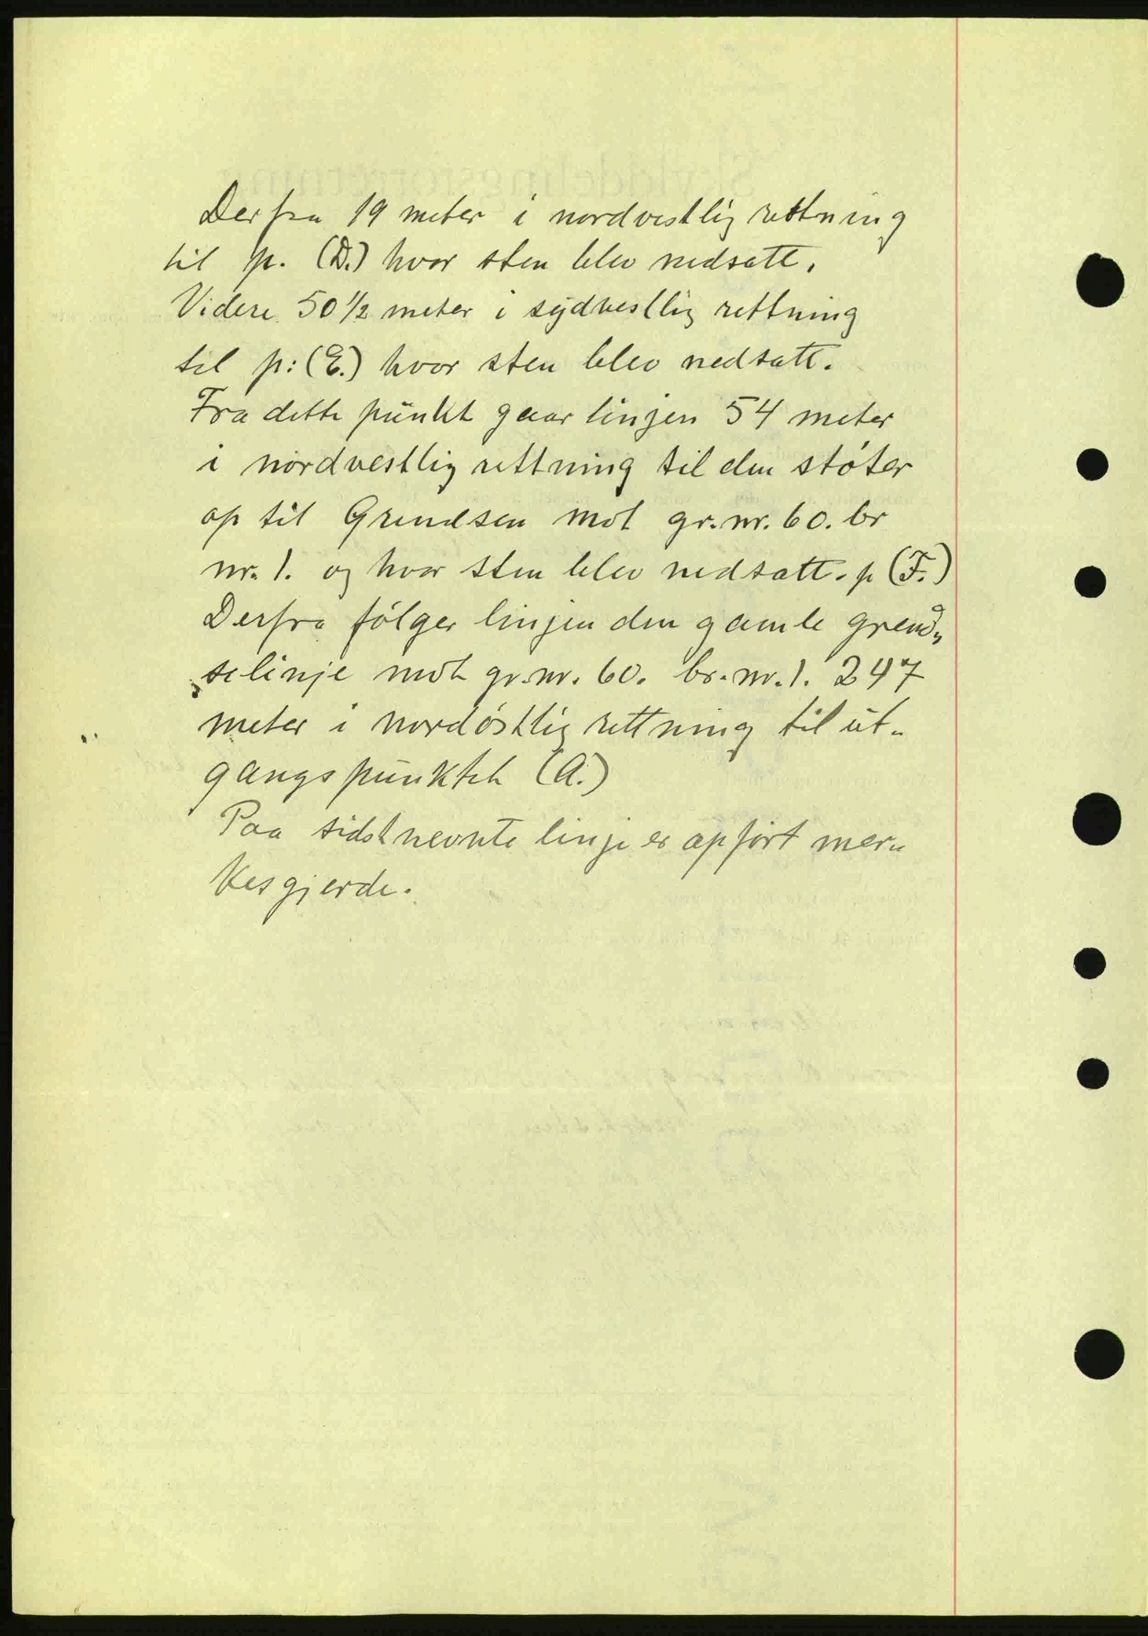 Derfra 19 meter i nordvestlig rettning
til p. (D.) hvor sten blev nedsatt.
Videre 50 1/2 meter i sydvestlig rettning
til p: (E.) hvor sten blev nedsatt.
Fra dette punkt gaar linjen 54 meter
i nordvestlig rettning til den støter
op til Grendsen mot gr. nr. 60. br
nr. 1. og hvor sten blev nedsatt. p (F.)
Derfra følger linjen den gamle grend„
„selinje mot gr. nr. 60. br. nr. 1. 247
meter i nordøstlig rettning til ut-
gangspunktet (A.)
Paa sidstnevnte linje er opført mer„
kesgjerde.